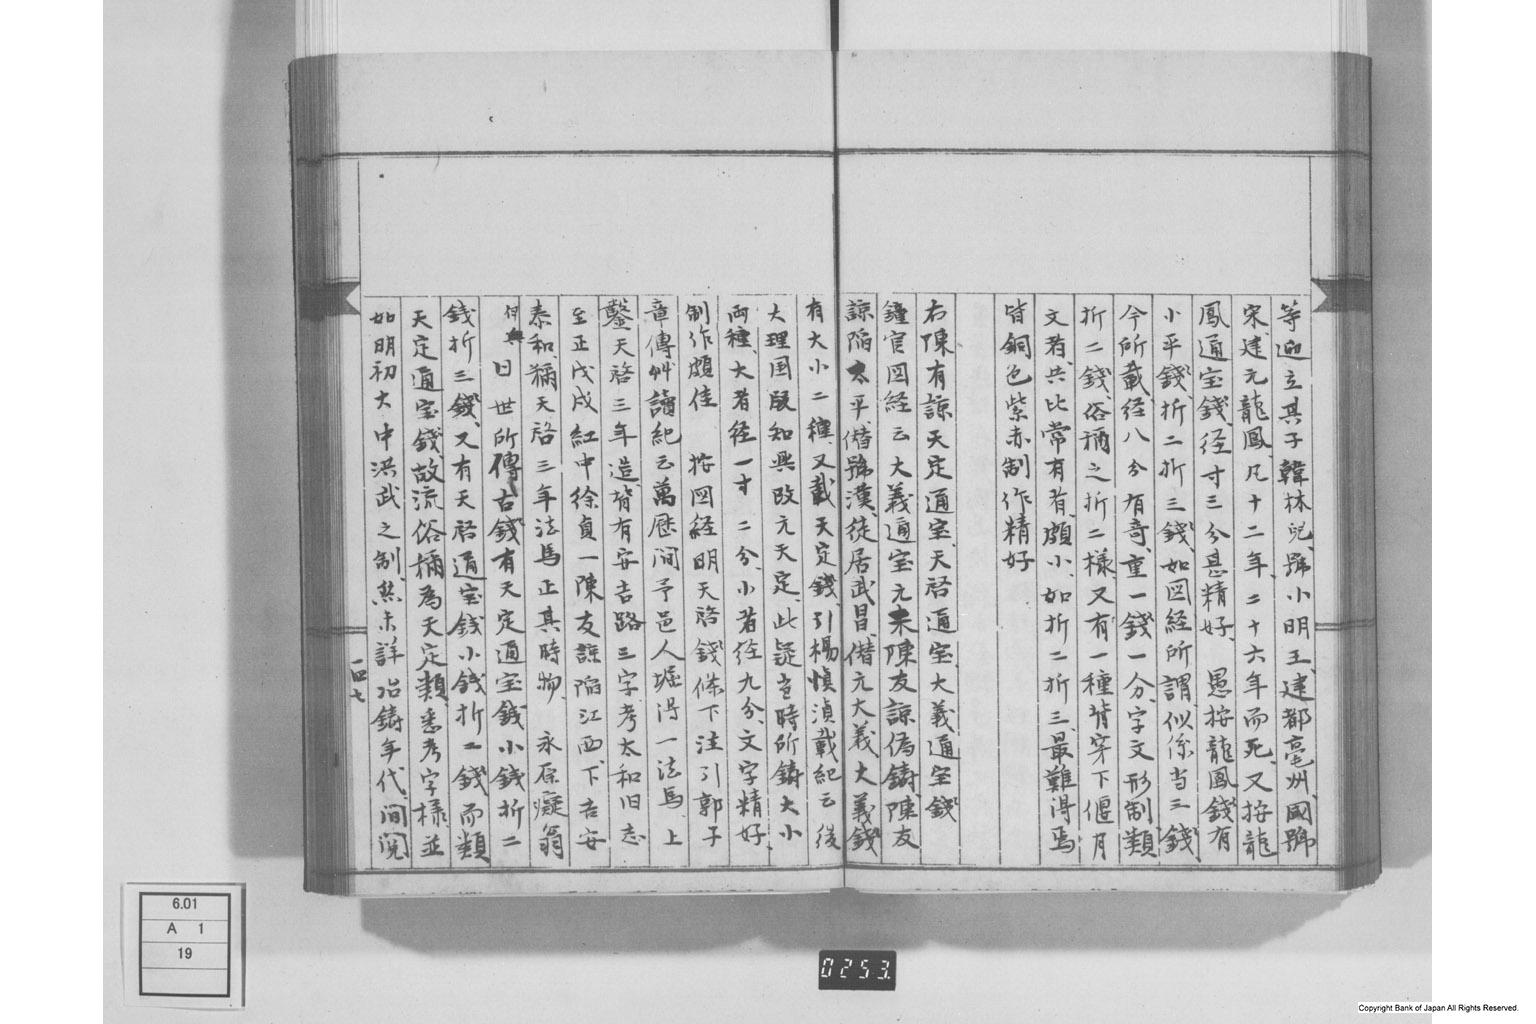 等迎立其子韓林児號小明王、建都亳州、國號
宋、建元龍鳳、凡十二年、二十六年而死、又按龍
鳳通宝錢、径寸三分甚精好、 愚按龍鳳錢有
小平錢、折二折三錢、如図経所謂似係当三錢、
今所載、径八分有奇、重一錢一分、字文形制類
折二錢、俗称之折二様、又有一種背穿下偃月
文者、共比常有者頗小、如折二折三最難得焉
皆銅色紫赤制作精好
右陳有諒天定通宝、天啓通宝、大義通宝錢
鐘官図経云大義通宝元末陳友諒偽鋳、陳友
諒陥太平僭號漢、徒居武昌、僭元大義、大義錢
有大小二種、又載天定錢、引楊慎滇載紀云後
大理国段知興改元天定、此疑当時所鋳、大小
両種、大者径一寸二分、小者径九分、文字精好、
制作頗佳 按図経明天啓錢條下注引郭子
章傳艸讀紀云萬歴間予邑人堀得一法馬上
鑿天啓三年造背有安吉路三字考太和旧志
至正戊戌紅巾徐貞一陳友諒陥江西、下吉安
泰和、称天啓三年法馬正其時物、 永原癡翁
伊興曰世所傳古錢有天定通宝錢小錢折二
錢折三錢、又有天啓通宝錢小錢折二錢而類
天定通宝錢、故流俗称為天定類、悉考字様並
如明初大中洪武之制、然未詳冶鋳年代、間閲
一四七
6.01
A 1
19
0253
Copyright Bank of Japan All Rights Reserved.